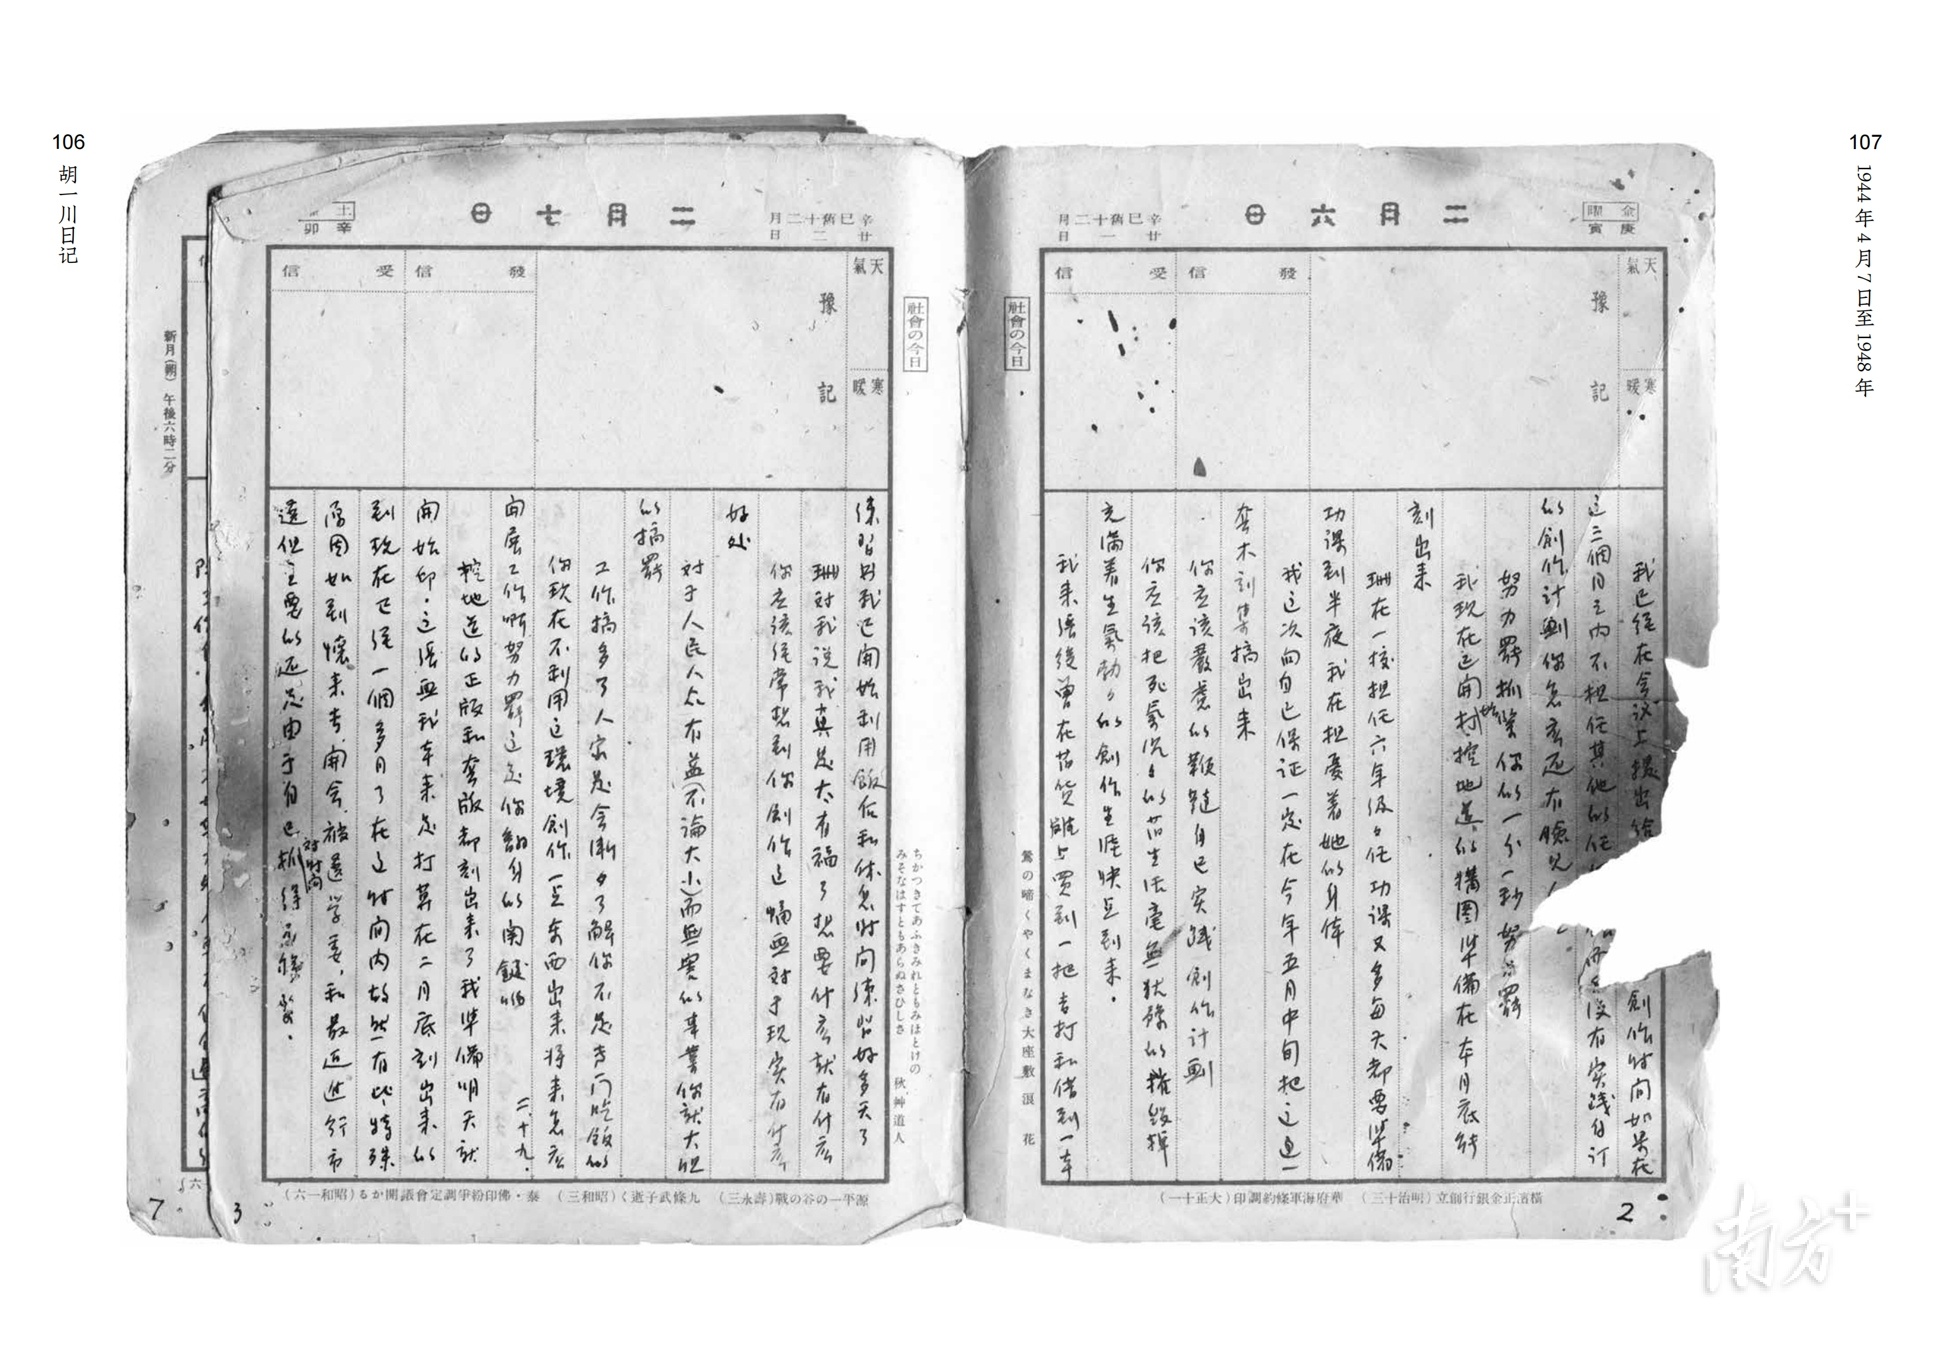 106
胡一川日记
107
1944年4月7日至1948年
二月六日
金曜
庚寅
辛巳舊十二月
廿一日
天氣
寒暖
豫記
發信
受信
社會の今日
我已经在会议上提出给
創作时间如果在
这三個月之内不担任其他的任
没有实践自订
的創作计劃你怎么还有臉見人
努力罢抓紧你的一分一秒努力罢
我现在已開始刻挖地道的構图準備在本月底能
刻出来
珊在一校担任六年级级任功课又多每天都要準備
功课到半夜我在担憂着她的身体
我这次向自己保证一定在今年五月中旬把这追一
套木刻集搞出来
你应该嚴肅的鞭韃自己实践創作计劃
你应该把死氣沉沉的旧生活毫無犹豫的摧毁掉
充满着生氣勃勃的創作生涯快点到来.
我来張後曾在旧货攤上買到一把吉打和借到一本
鶯の啼くやくまなき大座敷 浪花
橫濱正金銀行創立(明治十三) 華府海軍條約調印(大正十一)
2
二月七日
土
辛卯
辛巳舊十二月
廿二日
天氣
寒暖
豫記
發信
受信
社會の今日
練習书我已開始利用飯后和休息时间練習好多天了
珊对我说我真是太有福了想要什么就有什么
你应该經常想到你創作这幅画对于现实有什么
好处
对于人民人众有益(不論大小)而無害的事業你就大胆
的搞罢
工作搞多了人家是会漸々了解你不是专门吃飯的
你现在不利用这環境創作一点东西出来将来怎么
開展工作啊努力罢这是你翻身的開鍵哟
二.十九.
挖地道的正版和套版都刻出来了我準備明天就
開始印.这張画我本来是打算在二月底刻出来的
到现在已经一個多月了在这时间内故然有些特殊
原因如到懷来去開会被選学委,和最近进行市
選但主要的还是由于自己对时间抓得不够緊.
ちかつきてあふきみれともみほとけの
みそなはすともあらぬさひしさ 秋艸道人
源平一の谷の戰(壽永三) 九條武子逝く(昭和三) 泰・佛印紛爭調定會議開かる(昭和一六)
3
新月(朔) 午後六時二分
7
南方+